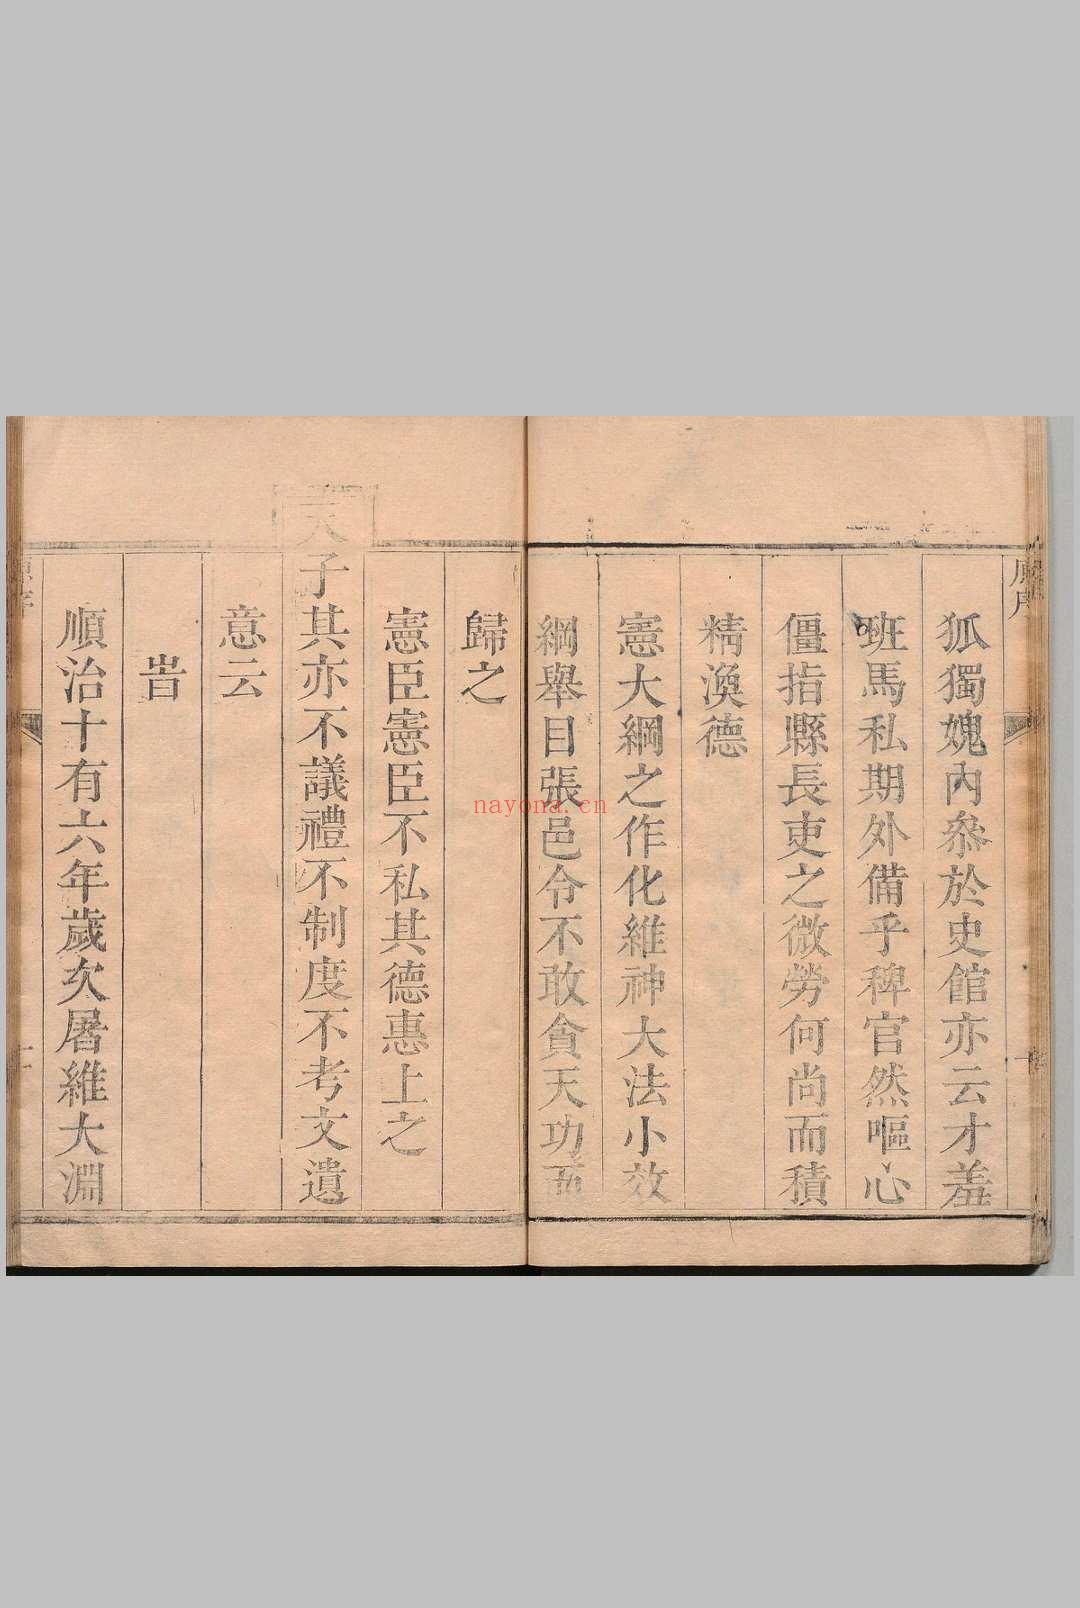 狐獨媿內叅於史館亦云才羞
班馬私期外備乎稗官然嘔心
僵指縣長吏之微勞何尚而積
精渙德
憲大綱之作化維神大法小效
綱舉目張邑令不敢貪天功
歸之
憲臣憲臣不私其德惠上之
天子其亦不議禮不制度不考文遺
意云
旹
順治十有六年歲次屠維大淵
nayona.cn